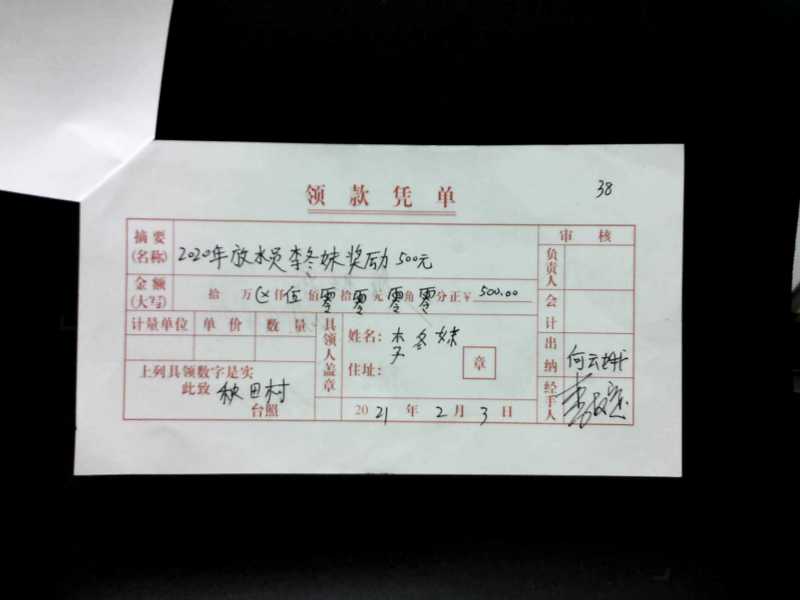 领款凭单
38
摘要(名称) 2020年放水员李冬妹奖励500元
金额(大写) 拾 万 ⊗ 仟 伍 佰 零 拾 零 元 零 角 零 分 正 ¥ 500.00
计量单位 单价 数量
上列具领数字是实
此致 秧田村
台照
具领人盖章
姓名: 李冬妹
住址:
章
2021年2月3日
审核
负责人
会计
出纳 何云娥
经手人